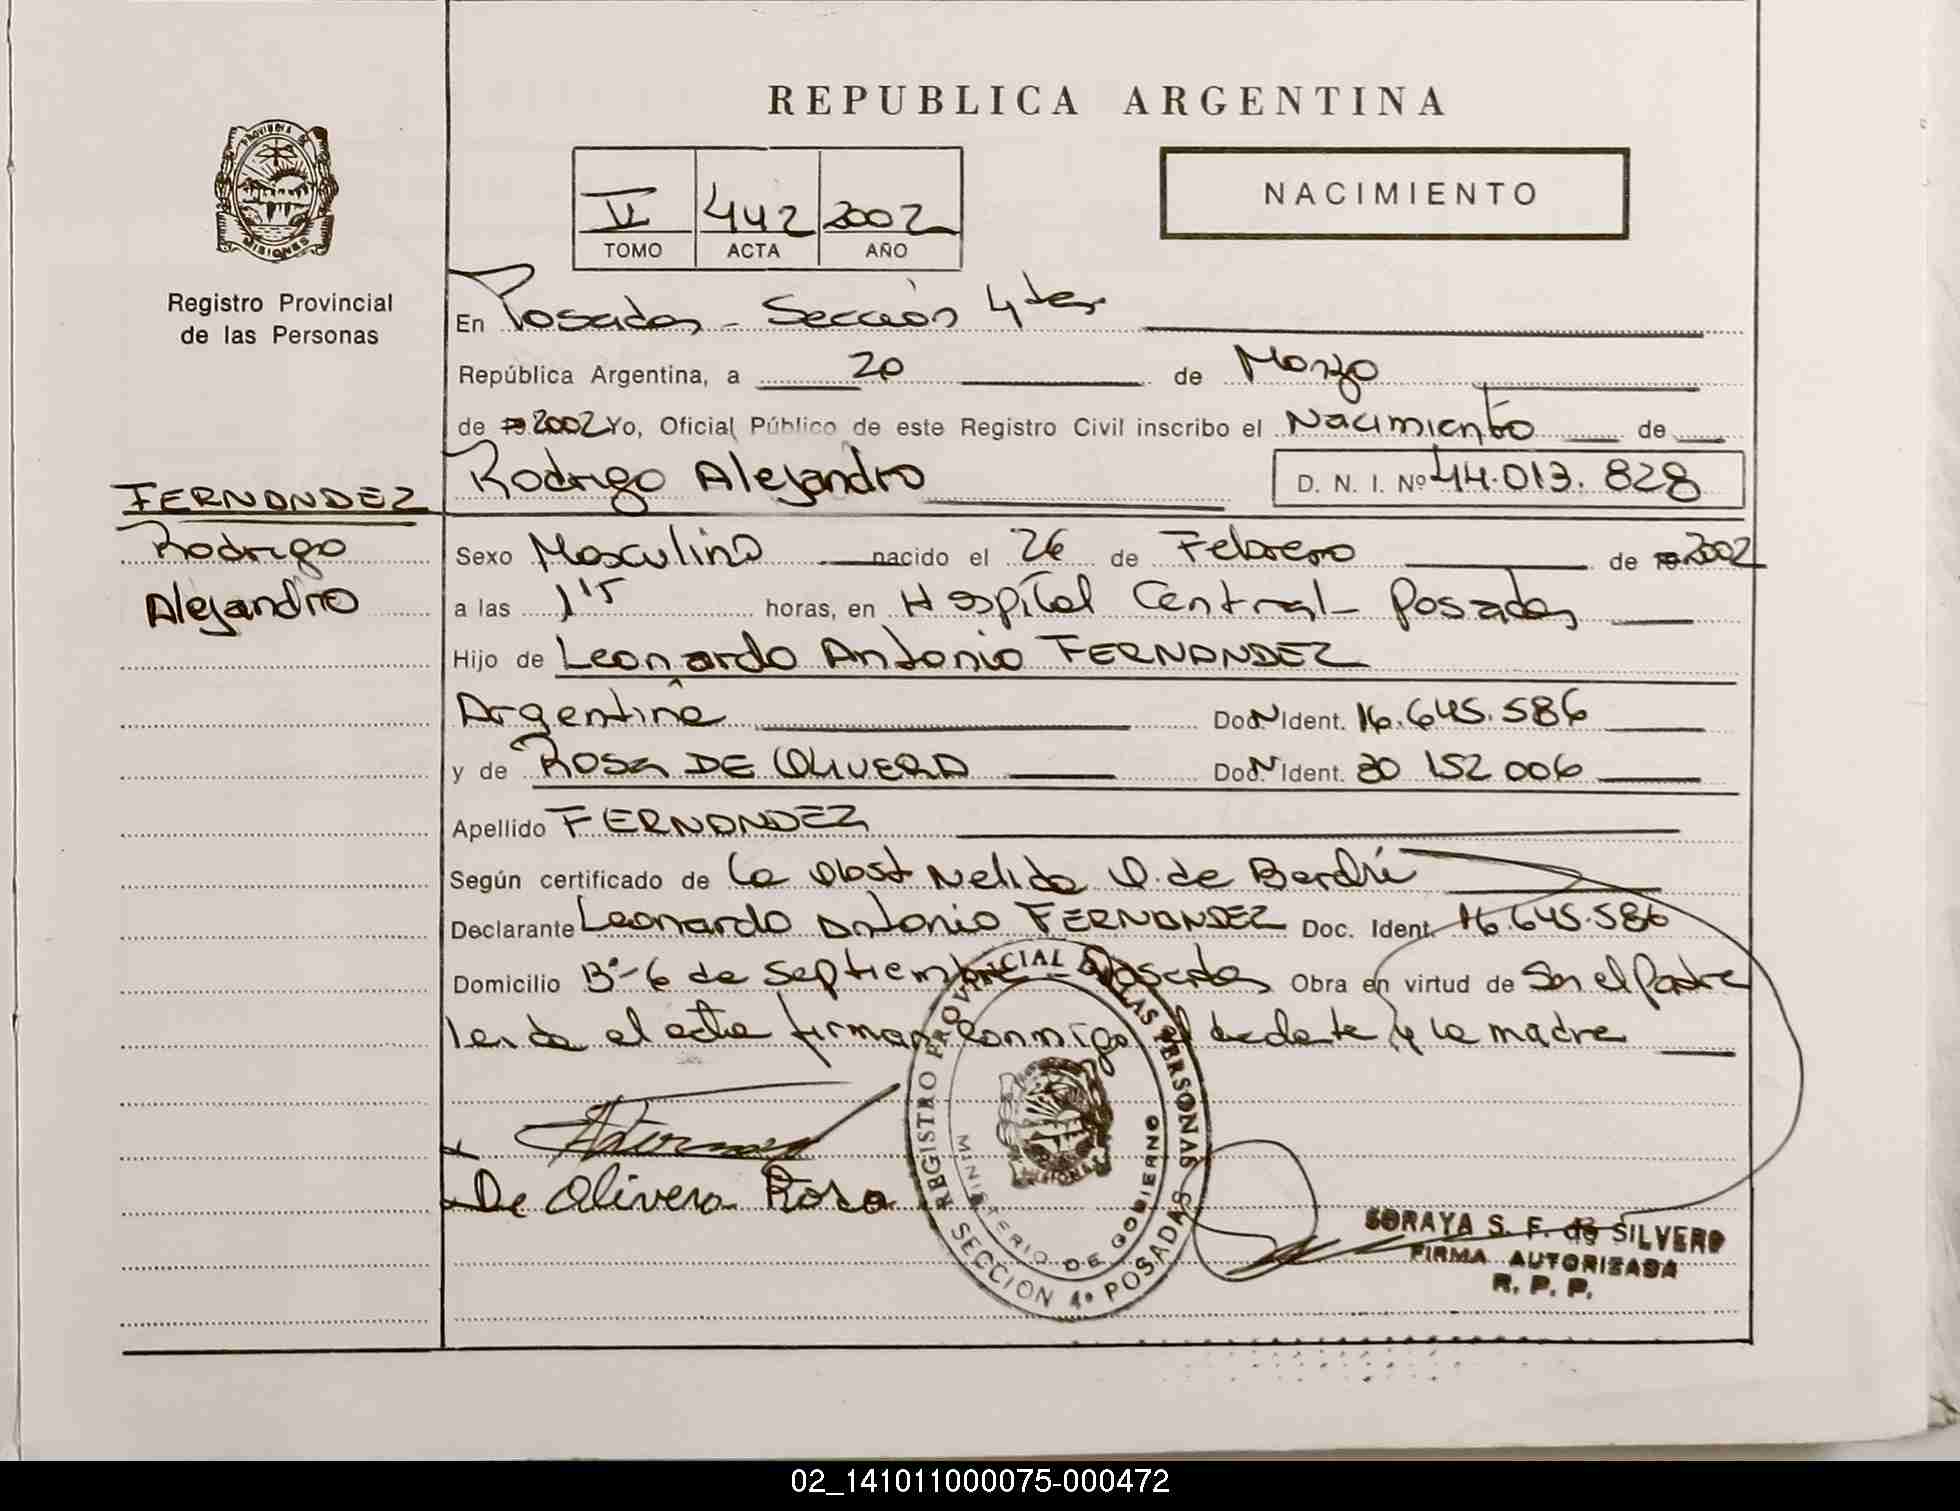 REPUBLICA ARGENTINA
PROVINCIA DE
MISIONES
Registro Provincial
de las Personas
II 442 2002
TOMO ACTA AÑO
NACIMIENTO
En Posadas - Sección 4ta
República Argentina, a 20 de Marzo
de 2002 Yo, Oficial Público de este Registro Civil inscribo el Nacimiento de
Rodrigo Alejandro D. N. I. Nº 44.013.828
FERNANDEZ
Rodrigo
Alejandro
Sexo Masculino nacido el 26 de Febrero de 2002
a las 1'15 horas, en Hospital Central - Posadas
Hijo de Leonardo Antonio FERNANDEZ
Argentino Doc. Ident. 16.645.586
y de ROSA DE OLIVERA Doc. Ident. 30 152 006
Apellido FERNANDEZ
Según certificado de la Obst Nelida de
Declarante Leonardo Antonio FERNANDEZ Doc. Ident. 16.645.586
Domicilio Bº - 6 de Septiembre Posadas Obra en virtud de Ser el Padre
leida el acta firman conmigo y la madre
De Olivera Rosa
REGISTRO PROVINCIAL DE LAS PERSONAS
MINISTERIO DE GOBIERNO
SECCION 4º POSADAS
SORAYA S. F. de SILVERO
FIRMA AUTORIZADA
R. P. P.
02_141011000075-000472